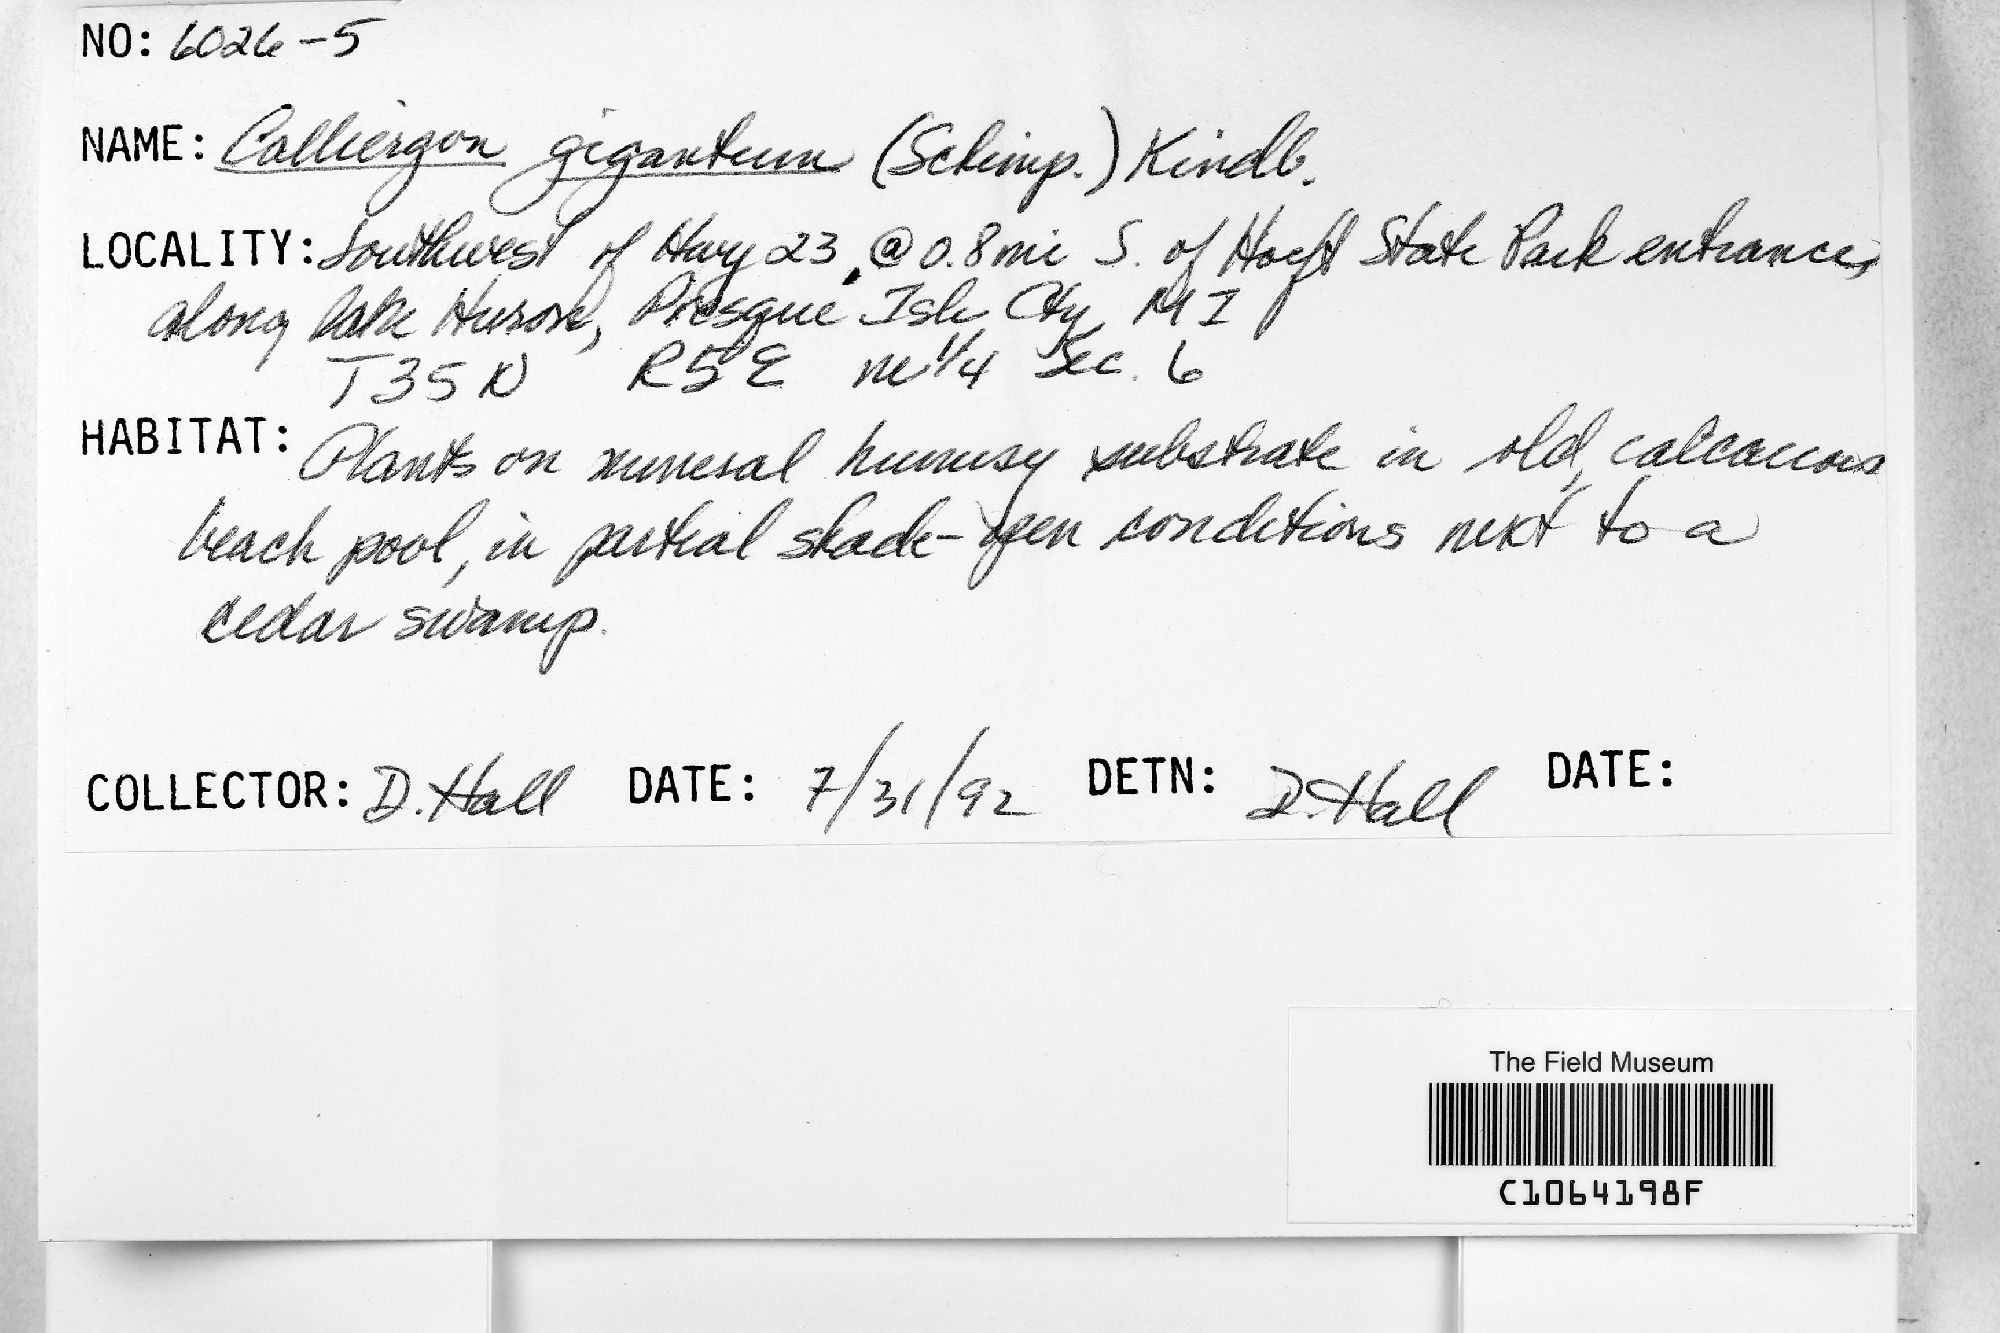 NO: 6026-5
NAME: Calliergon giganteum (Schimp.) Kindb.
LOCALITY: Southwest of Hwy 23, @ 0.8 mi S. of Hoeft State Park entrance,
along Lake Huron, Presque Isle Cty MI
T35N R5E NE 1/4 Sec. 6
HABITAT: Plants on mineral humusy substrate in old, calcareous
beach pool, in partial shade-open conditions next to a
cedar swamp.
COLLECTOR: D. Hall DATE: 7/31/92 DETN: D. Hall DATE:
The Field Museum
C1064198F